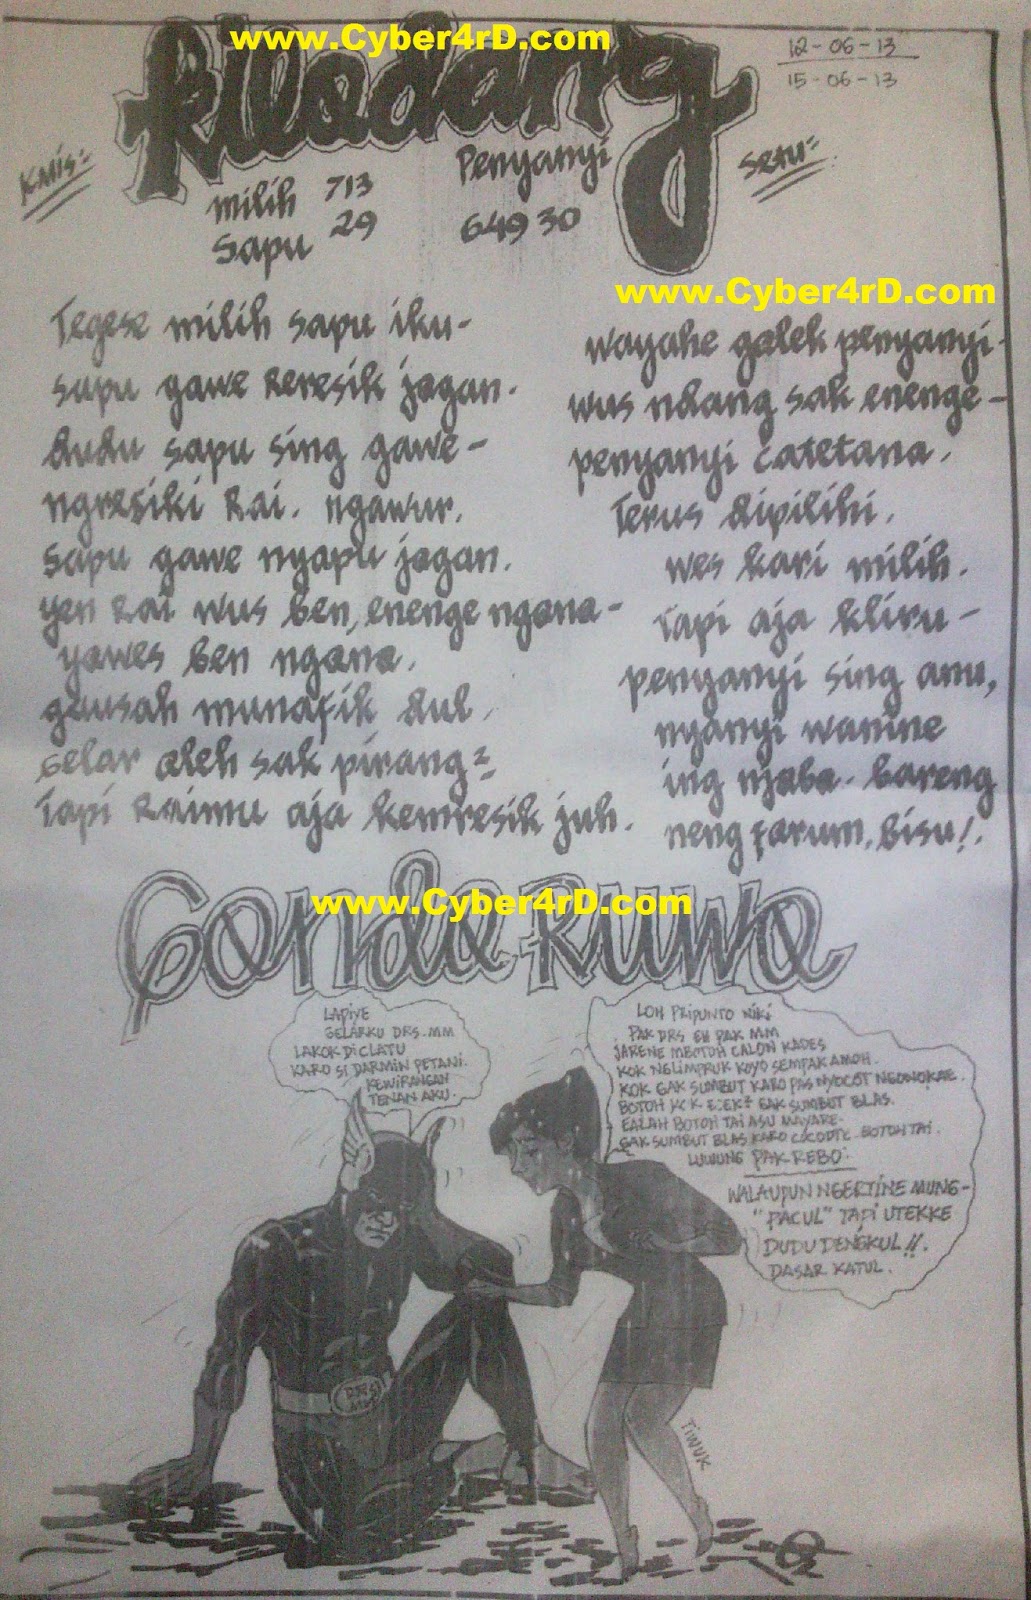 www.Cyber4rD.com
Kiladang
12-06-13
15-06-13
Kmis=
milih 713
Sapu 29
Penyanyi
64930
Setu=
www.Cyber4rD.com
Tegese milih sapu iku-
sapu gawe reresik jogan.
dudu sapu sing gawe-
ngresiki Rai. ngawur.
Sapu gawe nyapu jogan.
yen Rai wus ben, enenge ngono-
yowes ben ngono.
gausah munafik dul.
Gelar oleh sak pirang2
Tapi Raimu aja kemresik juh.
wayahe golek penyanyi-
wus ndang sak enenge-
penyanyi catetana.
Terus dipilihi.
wes kari milih.
Tapi aja kliru-
penyanyi sing anu,
nyanyi wanine
ing njaba. bareng
neng forum, bisu!.
www.Cyber4rD.com
Gondo Ruwo
LAPIYE
GELARKU DRS.MM
LAKOK DICLATU
KARO SI DARMIN PETANI.
KEWIRANGAN
TENAN AKU.
LOH PRIPUNTO NIKI
PAK DRS EH PAK MM
JARENE MBOTOH CALON KADES
KOK NGLIMPRUK KOYO SEMPAK AMOH.
KOK GAK SUMBUT KARO PAS NYOCOT NGONOKAE.
BOTOH GAK SUMBUT BLAS.
EALAH BOTOH TAI ASU MAYARE-
GAK SUMBUT BLAS KARO BOTOH TAI.
LUWUNG PAK REBO.
WALAUPUN NGERTINE MUNG-
"PACUL" TAPI UTEKKE
DUDU DENGKUL!!.
DASAR KATUL.
DRS
MM
TINUK